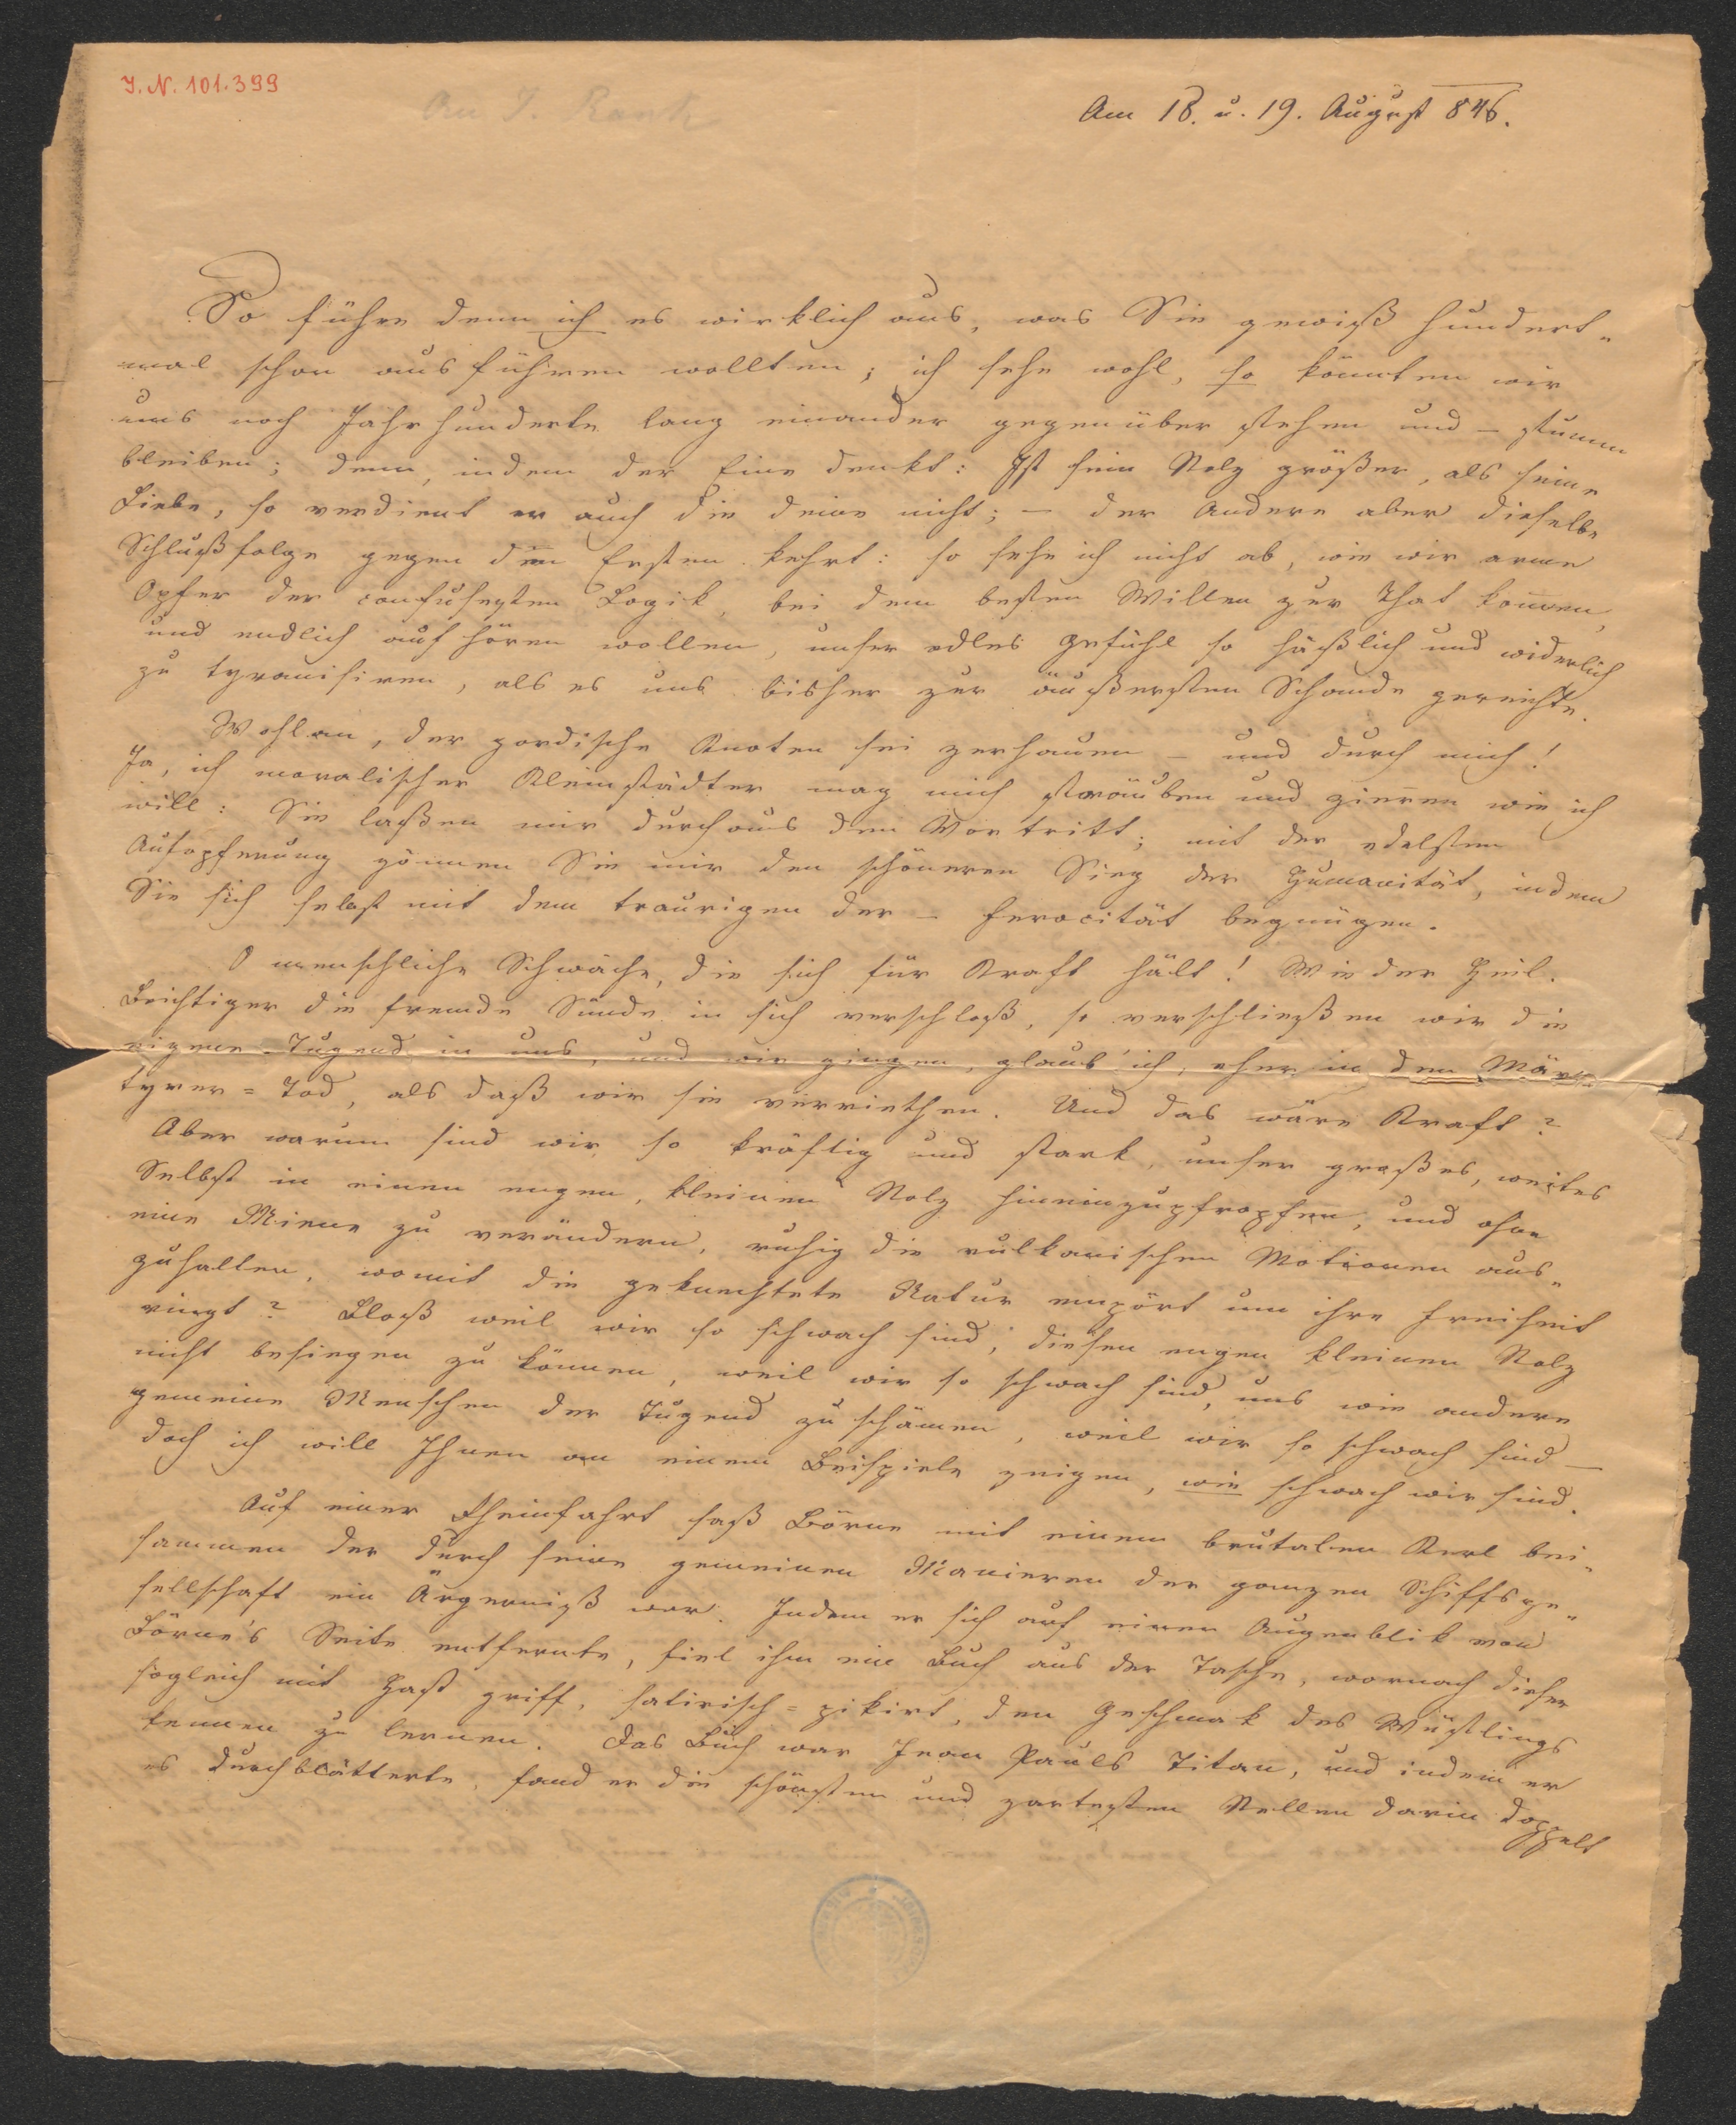 I. N. 101.399
An J. Rank
Am 18. u. 19. August 846.
So führe denn ich es wirklich aus, was Sie gewiß hundert-
mal schon ausführen wollten; ich sehe wohl, so könnten wir
uns noch Jahrhunderte lang einander gegenüber stehen und – stumm
bleiben; denn, indem der Eine denkt: Ist sein Stolz größer, als seine
Liebe, so verdient er auch die deine nicht; – der Andere aber dieselbe
Schlußfolge gegen den Ersten kehrt: so sehe ich nicht ab, wie wir arme
Opfer der confusesten Logik, bei dem besten Willen zur That kommen,
und endlich aufhören wollen, unser edles Gefühl so häßlich und widerlich
zu tyranisiren, als es uns bisher zur äußersten Schande gereichte.
Wohlan, der gordische Knoten sei zerhauen – und durch mich!
Ja, ich moralischer Kleinstädter mag mich sträuben und zieren wie ich
will: Sie laßen mir durchaus den Vortritt; mit der edelsten
Aufopferung gönnen Sie mir den schöneren Sieg der Humanität, indem
Sie sich selbst mit dem traurigen der – Ferocität begnügen.
O menschliche Schwäche, die sich für Kraft hält! Wie der Heil.
Beichtiger die fremde Sünde in sich verschloß, so verschließen wir die
eigene Tugend in uns, und wir gingen, glaub' ich, eher in den Mär-
tyrer=Tod, als daß wir sie verriethen. Und das wäre Kraft?
Aber warum sind wir so kräftig und stark, unser großes, weites
Selbst in einen engen, kleinen Stolz hineinzupfropfen, und ohne
eine Miene zu verändern, ruhig die vulkanischen Motionen aus-
zuhalten, womit die geknechtete Natur empört um ihre Freiheit
ringt? Bloß weil wir so schwach sind, diesen engen kleinen Stolz
nicht besiegen zu können, weil wir so schwach sind, uns wie andere
gemeine Menschen der Tugend zu schämen, weil wir so schwach sind –
doch ich will Ihnen an einem Beispiele zeigen, wie schwach wir sind.
Auf einer Rheinfahrt saß Börne mit einem brutalen Kerl bei-
sammen der durch seine gemeinen Manieren der ganzen Schiffsge-
sellschaft ein Ärgerniß war. Indem er sich auf einen Augenblik von
Börne's Seite entfernte, fiel ihm ein Buch aus der Tasche, wornach dieser
sogleich mit Hast griff, satirisch=pikirt, den Geschmak des Wüstlings
kennen zu lernen. Das Buch war Jean Pauls Titan, und indem er
es durchblätterte, fand er die schönsten und zartesten Stellen darin doppelt